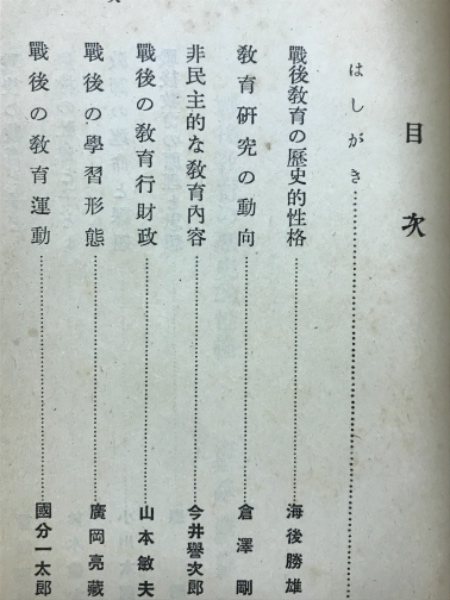 目次
はしがき
戰後敎育の歷史的性格 海後勝雄
敎育硏究の動向 倉澤剛
非民主的な敎育內容 今井譽次郎
戰後の敎育行財政 山本敏夫
戰後の學習形態 廣岡亮藏
戰後の敎育運動 國分一太郎